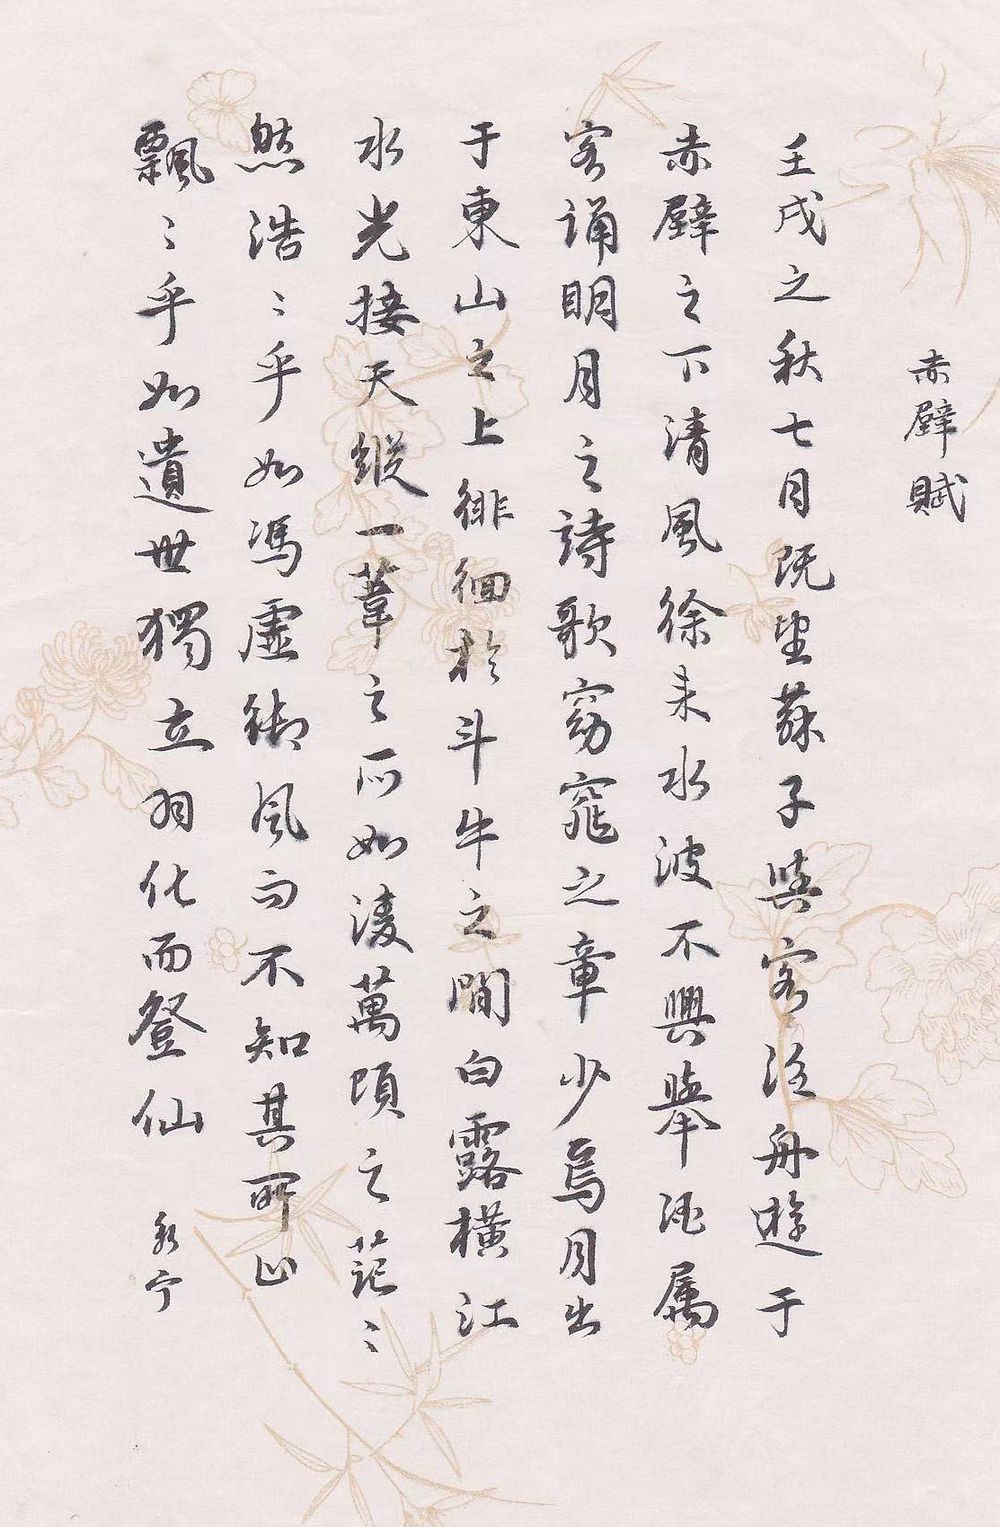 赤壁賦
壬戌之秋七月既望蘇子與客泛舟遊于
赤壁之下清風徐来水波不興舉酒属
客誦明月之詩歌窈窕之章少焉月出
于東山之上徘徊於斗牛之間白露橫江
水光接天縱一葦之所如淩萬頃之茫〻
然浩〻乎如馮虚御風而不知其所止
飄〻乎如遺世獨立羽化而登仙
永宁